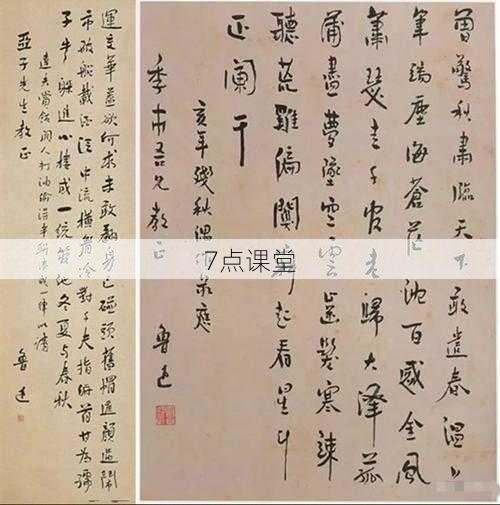 運交華蓋欲何求未敢翻身已碰頭舊帽遮顏過鬧
市破船載酒泛中流橫眉冷對千夫指俯首甘為孺
子牛躲進小樓成一統管他冬夏與春秋
達夫賞飯閑人打油偷得半聯湊成一律以請
亞子先生教正
魯迅
曾驚秋肅臨天下敢遣春溫上
筆端塵海蒼茫沈百感金風
蕭瑟走千官老歸大澤菰
蒲盡夢墜空雲齒髮寒竦
聽荒雞偏闃寂起看星斗
正闌干
亥年殘秋偶作錄應
季市吾兄教正
魯迅
7点课堂